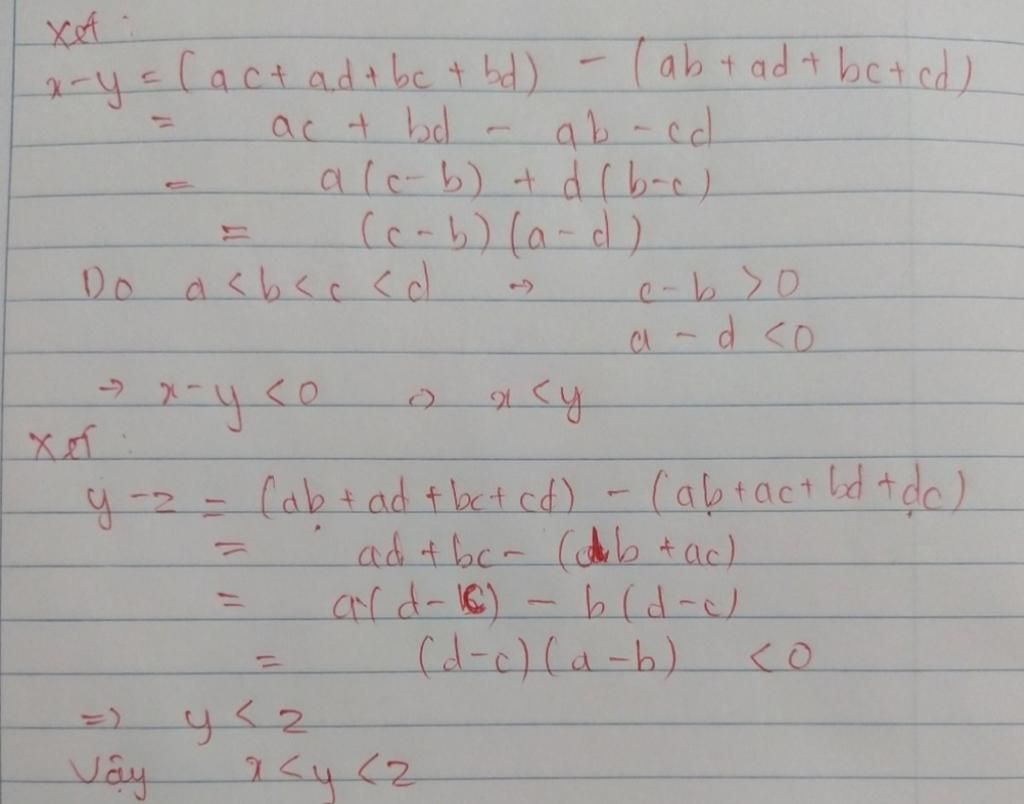 Xét :
x-y = (ac + ad + bc + bd) - (ab + ad + bc + cd)
= ac + bd - ab - cd
= a(c-b) + d(b-c)
= (c-b)(a-d)
Do a < b < c < d → c-b > 0
a - d < 0
→ x-y < 0 => x < y
Xét :
y - z = (ab + ad + bc + cd) - (ab + ac + bd + dc)
= ad + bc - (db + ac)
= a(d-c) - b(d-c)
= (d-c)(a-b) < 0
=> y < z
Vậy x < y < z